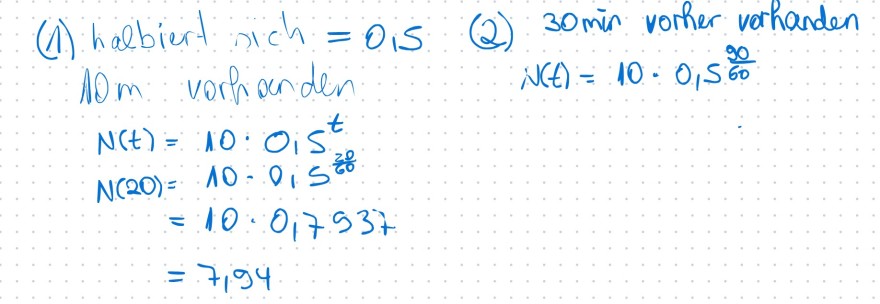 (1) halbiert sich = 0,5
10m vorhanden
N(t) = 10 · 0,5^t
N(20) = 10 · 0,5^(20/60)
= 10 · 0,7937
= 7,94
(2) 30min vorher vorhanden
N(t) = 10 · 0,5^(90/60)